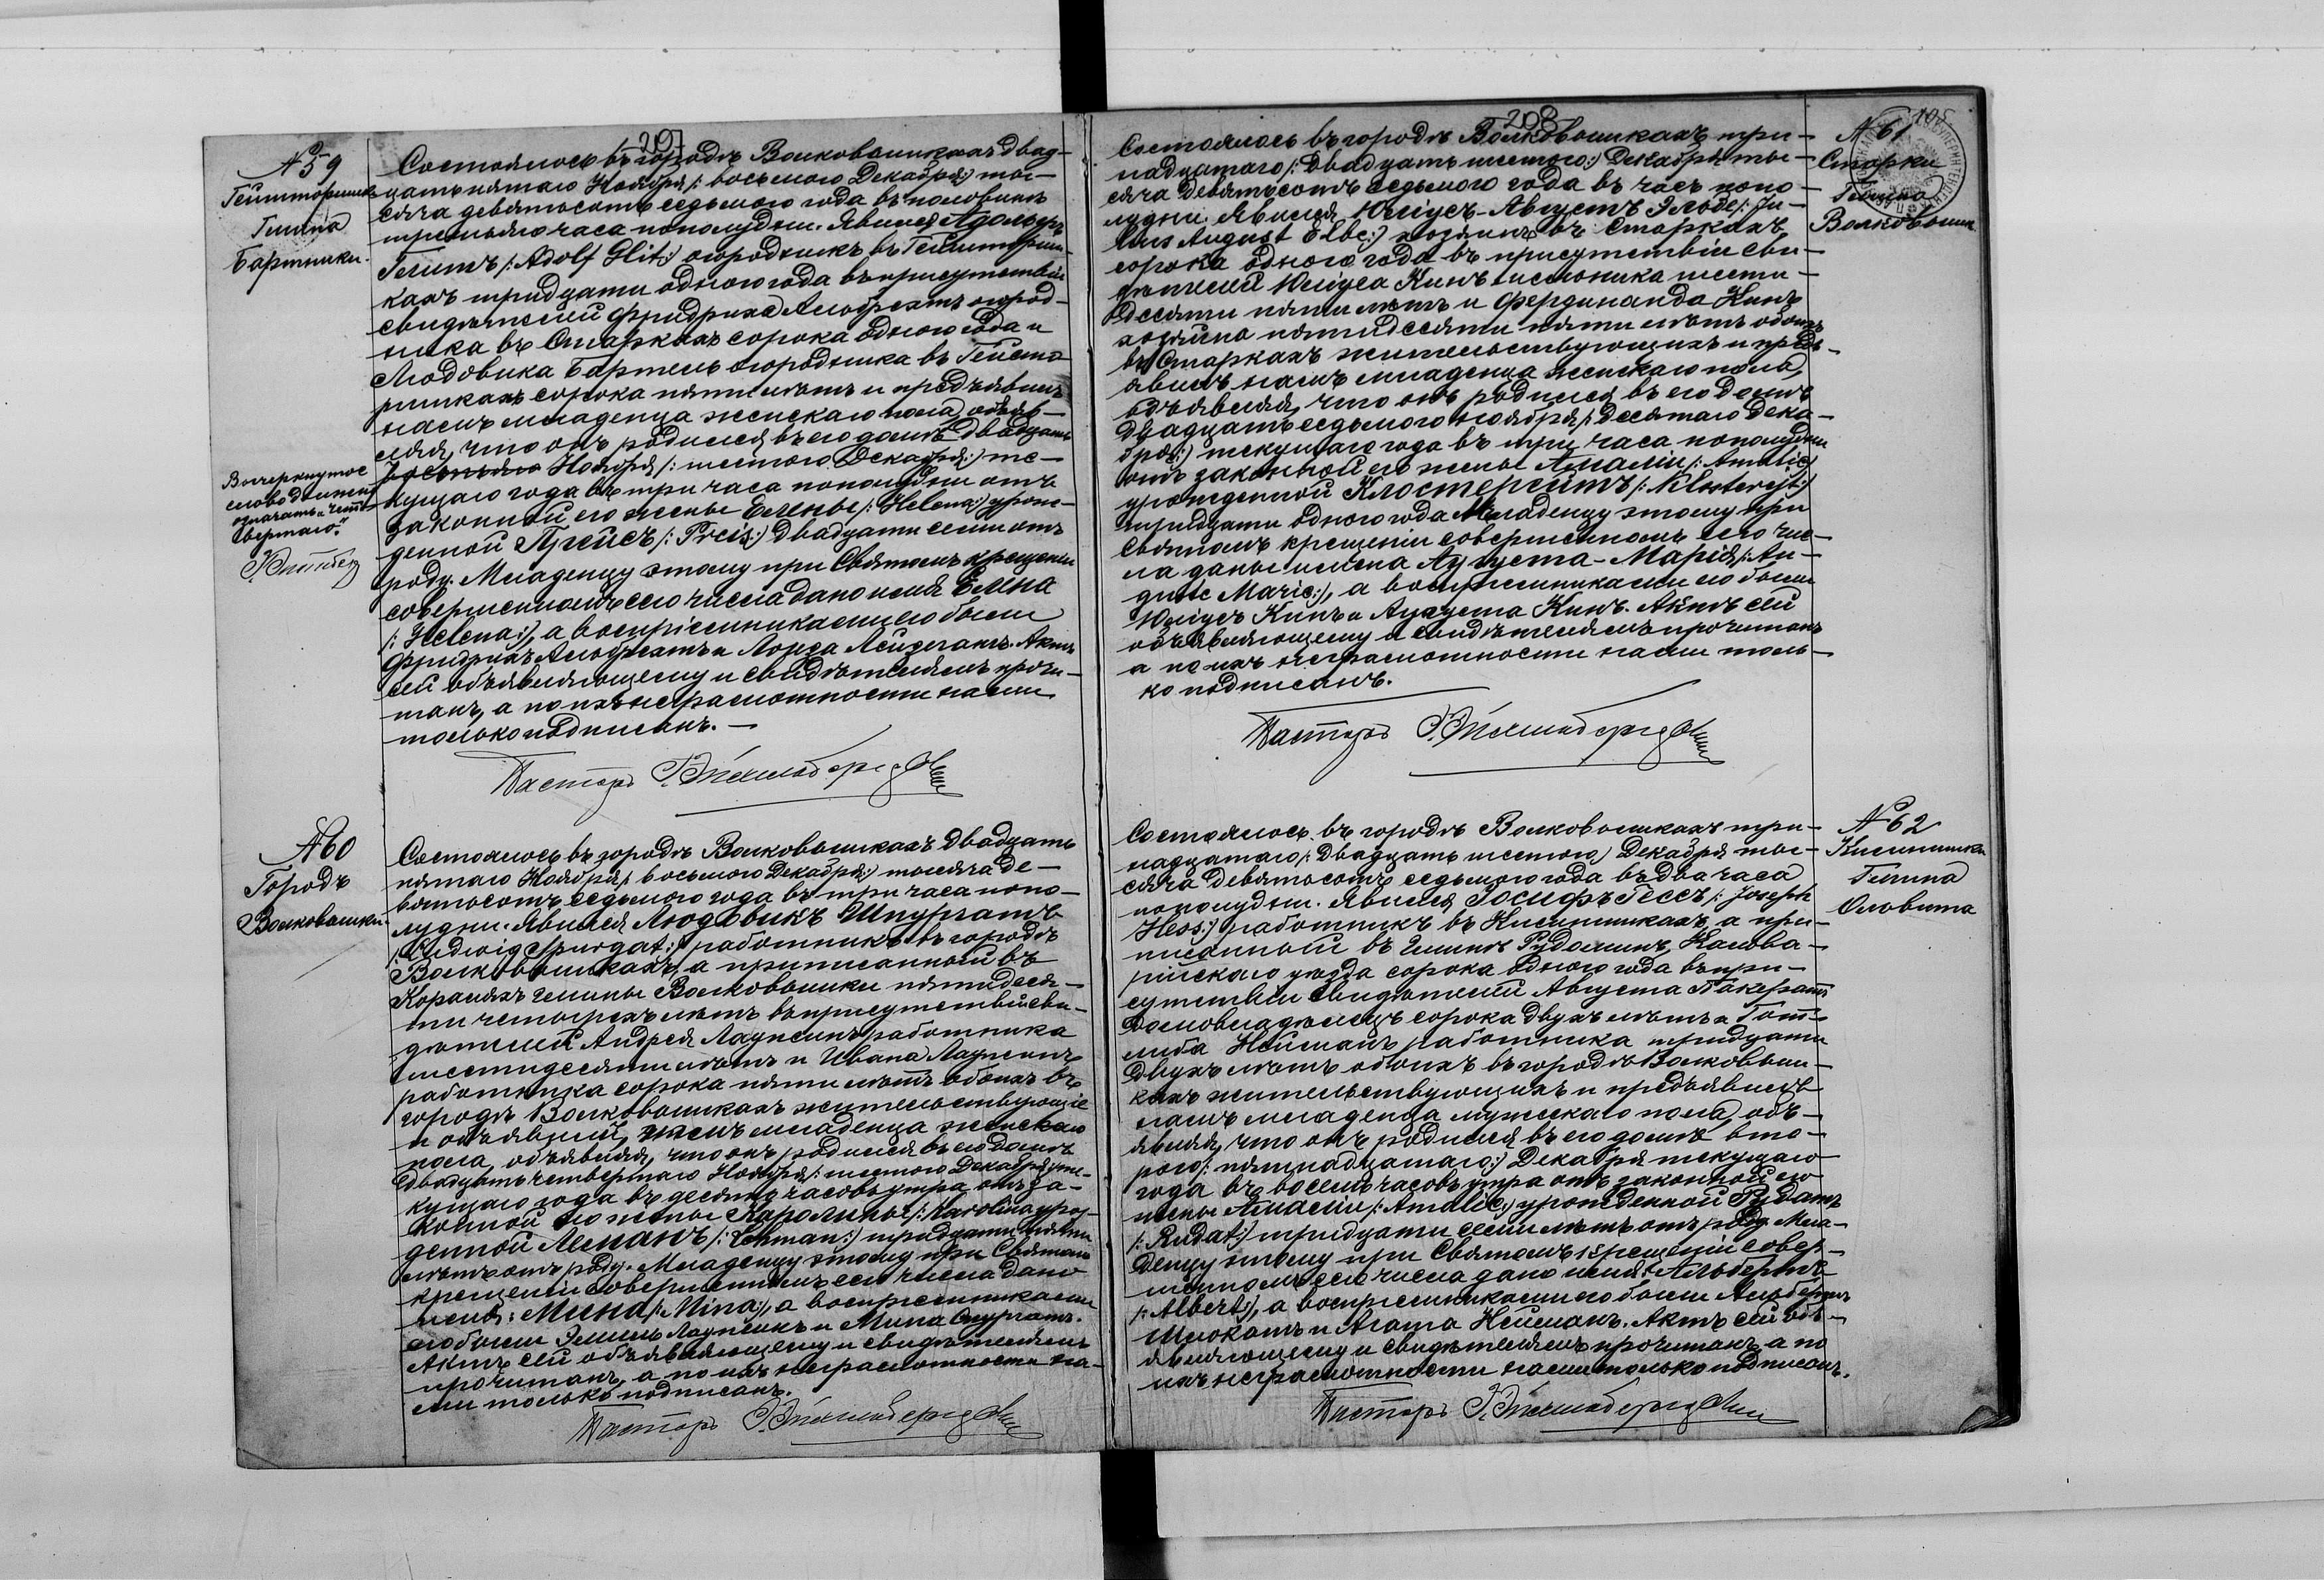 207
№ 59
Гейшторишки
Гмина
Бартники.
Состоялось въ городѣ Волковышкахъ двад-
цать пятаго Ноября /: восьмого Декабря :/ ты-
сяча девятьсотъ седьмого года въ половинѣ
третьяго часа пополудни. Явился Адольфъ
Глитъ /: Adolf Glit :/ огородникъ въ Гейшториш-
кахъ тридцати одного года въ присутствіи
свидѣтелей Фридриха огород-
ника въ Старкахъ сорока одного года и
Людовика Бартель огородника въ Гейшто-
ришкахъ сорока пяти лѣтъ и предъявилъ
намъ младенца женскаго пола, объяв-
ляя, что онъ родился въ его домѣ двадцать
Ноября /: шестого Декабря :/ те-
кущаго года въ три часа пополудни отъ
законной его жены Елены /: Helena :/ урож-
денной Прейсъ /: Preis :/ двадцати семи отъ
роду. Младенцу этому при Святомъ крещеніи
совершенномъ сего числа дано имя Елена
/: Helena :/, а воспріемниками его были
Фридрихъ и Лоиза . Актъ
сей объявляющему и свидѣтелямъ прочи-
танъ, а по ихъ неграмотности нами
только подписанъ. —
Вычеркнутое
слово должно
означать „чет-
вертаго".
Пасторъ
№ 60
Городъ
Волковышки.
Состоялось въ городѣ Волковышкахъ двадцать
пятаго Ноября /: восьмого Декабря :/ тысяча де-
вятьсотъ седьмого года въ три часа попо-
лудни. Явился Людовикъ Шпургатъ
/: Ludwig Spurgat :/ работникъ въ городѣ
Волковышкахъ, а приписанный въ
гмины Волковышки пятидеся-
ти четырехъ лѣтъ въ присутствіи сви-
дѣтелей Андрея работника
шестидесяти лѣтъ и Ивана
работника сорока пяти лѣтъ обоихъ въ
городѣ Волковышкахъ жительствующіе
и объявилъ, младенца женскаго
пола, объявляя, что онъ родился въ его домѣ
двадцать четвертаго Ноября /: шестого Декабря :/ те-
кущаго года въ десять часовъ утра отъ за-
конной его жены Каролины /: Karolina урож-
денной Леманъ /: Lehman :/ тридцати пяти
лѣтъ отъ роду. Младенцу этому при Святомъ
крещеніи совершенномъ сего числа дано
имя: Мина /: Mina :/, а воспріемниками
его были Эмиль и Мина Спургатъ.
Актъ сей объявляющему и свидѣтелямъ
прочитанъ, а по ихъ неграмотности на-
ми только подписанъ.
Пасторъ
208
105
№ 61
Старки
Гмина
Волковышки
Состоялось въ городѣ Волковышкахъ три-
надцатаго /: двадцать шестого :/ Декабря ты-
сяча девятьсотъ седьмого года въ часъ попо-
лудни. Явился Юліусъ-Августъ Эльбе /: Ju-
lius August Elbe :/ хозяинъ въ Старкахъ
сорока одного года въ присутствіи сви-
дѣтелей Юліуса Кинъ шести-
десяти пяти лѣтъ и Фердинанда Кинъ
хозяина пятидесяти пяти лѣтъ обоихъ
въ Старкахъ жительствующихъ и предъ-
явилъ намъ младенца женскаго пола,
объявляя, что онъ родился въ его домѣ
двадцать седьмого ноября /: десятаго дека-
бря :/ текущаго года въ три часа пополудни
отъ законной его жены Амаліи /: Amalie
урожденной Клостерейтъ /: Klostereit :/
тридцати одного года. Младенцу этому при
Святомъ крещеніи совершенномъ сего чис-
ла даны имена Аугуста-Марія /: Au-
guste Marie :/, а воспріемниками его были
Юліусъ Кинъ и Аугуста Кинъ. Актъ сей
объявляющему и свидѣтелямъ прочитанъ
а по ихъ неграмотности нами толь-
ко подписанъ.
Пасторъ
№ 62
Гмина
Ольвита
Состоялось въ городѣ Волковышкахъ три-
надцатаго /: двадцать шестого :/ Декабря ты-
сяча девятьсотъ седьмого года въ два часа
пополудни. Явился Іосифъ Гессъ /: Joseph
Hess :/ работникъ въ , а при-
писанный въ гминѣ Рудоминъ, Калова-
рійскаго уѣзда сорока одного года въ при-
сутствіи свидѣтелей Августа
домовладѣлецъ сорока двухъ лѣтъ и Гот-
либа Нейманъ работника тридцати
двухъ лѣтъ обоихъ въ городѣ Волковыш-
кахъ жительствующихъ и предъявилъ
намъ младенца мужескаго пола, объ-
являя, что онъ родился въ его домѣ вто-
рого /: пятнадцатаго :/ Декабря текущаго
года въ восемь часовъ утра отъ законной его
жены Амаліи /: Amalie :/ урожденной Рудатъ
/: Rudat :/ тридцати семи лѣтъ отъ роду. Мла-
денцу этому при Святомъ крещеніи совер-
шенномъ сего числа дано имя: Альбертъ
/: Albert :/, а воспріемниками его были Альбертъ
и Агата Нейманъ. Актъ сей объ-
являющему и свидѣтелямъ прочитанъ, а по
ихъ неграмотности нами только подписанъ.
Пасторъ